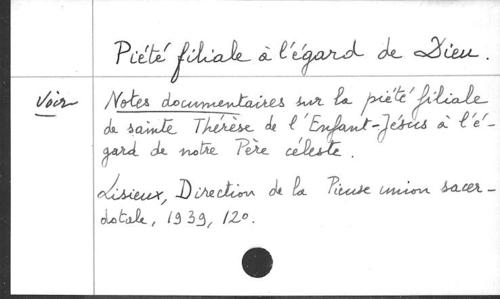 Piété filiale à l'égard de Dieu.
Voir
Notes documentaires sur la piété filiale
de sainte Thérèse de l'Enfant-Jésus à l'é-
gard de notre Père céleste.
Lisieux, Direction de la Pieuse union sacer-
dotale, 1939, 120.